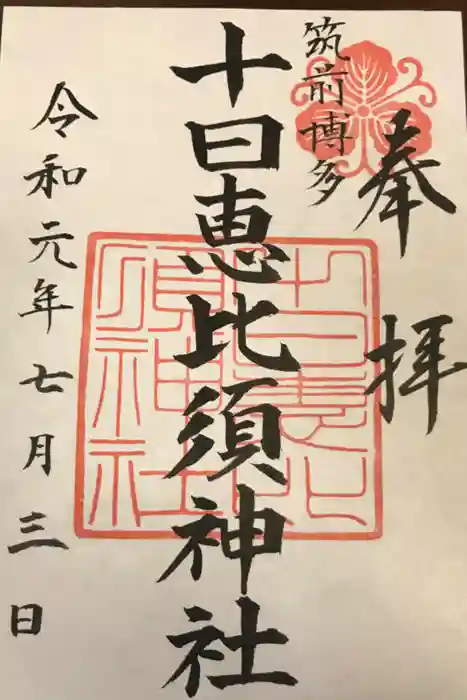 奉拝
筑前博多
十日恵比須神社
令和元年七月三日
十日恵比須神社